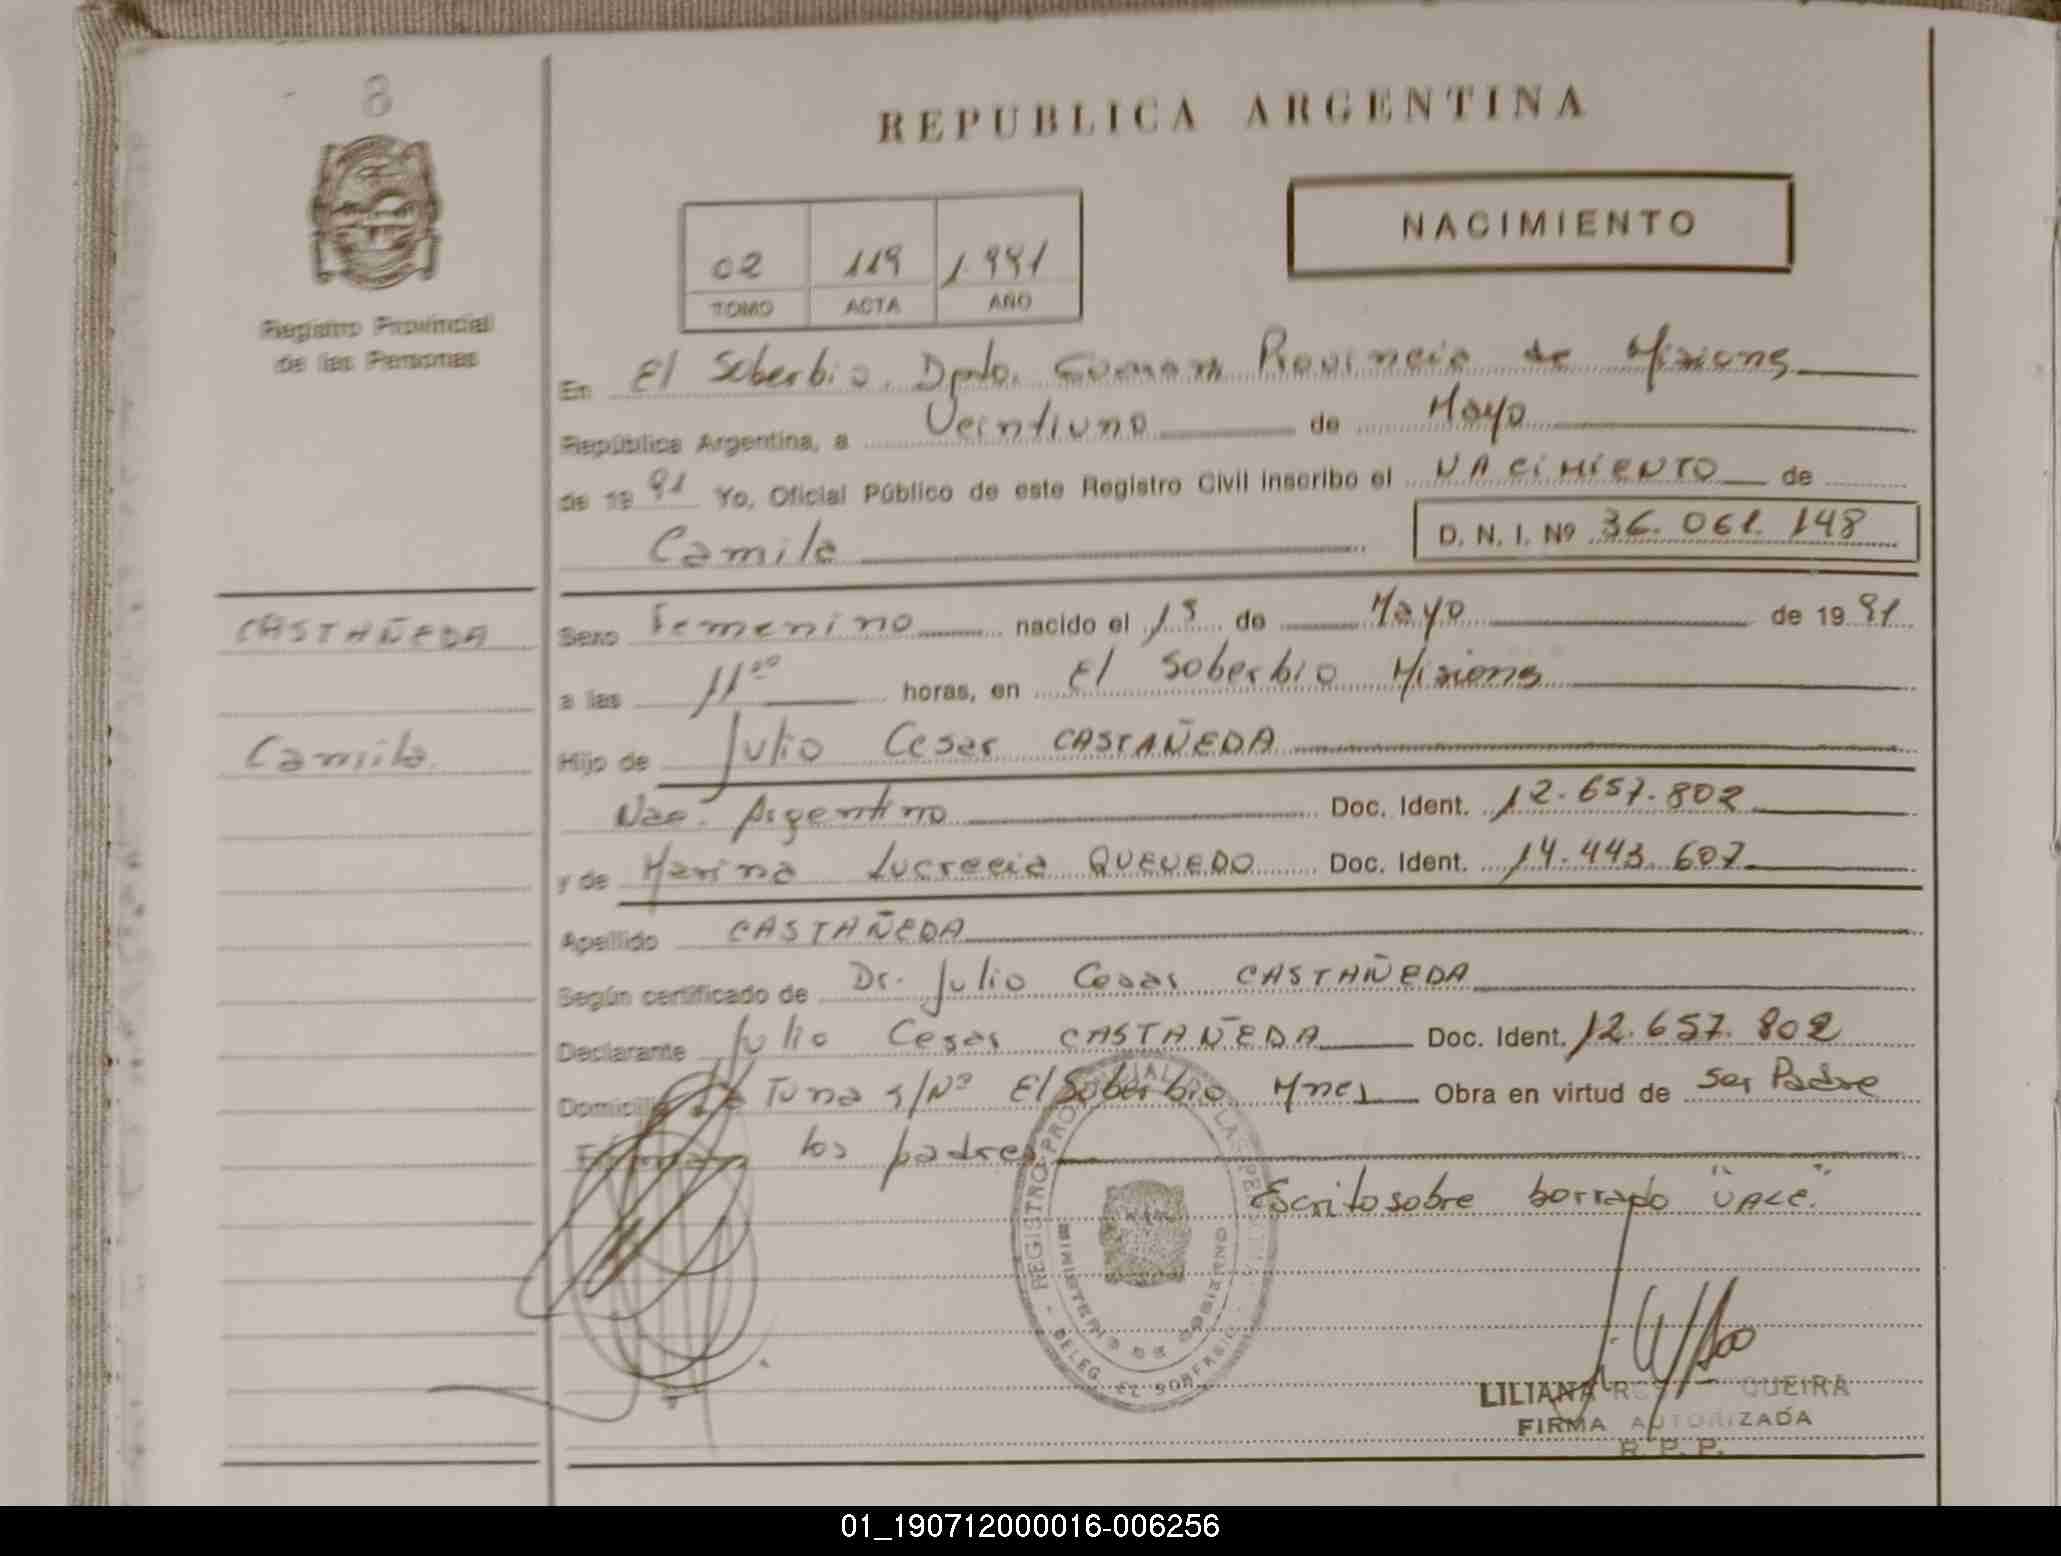 8
REPUBLICA ARGENTINA
NACIMIENTO
02 119 1.991
TOMO ACTA AÑO
Registro Provincial
de las Personas
En El Soberbio. Dpto. Provincia de Misiones
República Argentina, a Veintiuno de Mayo
de 19 91 Yo, Oficial Público de este Registro Civil inscribo el NACIMIENTO de
Camila D. N. I. Nº 36.061.148
CASTAÑEDA
Sexo Femenino nacido el de Mayo de 19 91
a las 11⁰⁰ horas, en El Soberbio Misiones
Camila
Hijo de Julio Cesar CASTAÑEDA
Nac. Argentino Doc. Ident. 12.657.802
y de Marina Lucrecia QUEVEDO Doc. Ident. 14.443.607
Apellido CASTAÑEDA
Según certificado de Dr. Julio Cesar CASTAÑEDA
Declarante Julio Cesar CASTAÑEDA Doc. Ident. 12.657.802
Domicilio Tuna s/Nº El Soberbio Mnes Obra en virtud de Ser Padre
Firman los padres
Escrito sobre borrado "VALE."
REGISTRO PROVINCIAL DE LAS PERSONAS
MINISTERIO DE GOBIERNO
- DELEG. EL SOBERBIO -
LILIANA R QUEIRA
FIRMA AUTORIZADA
R. P. P.
01_190712000016-006256